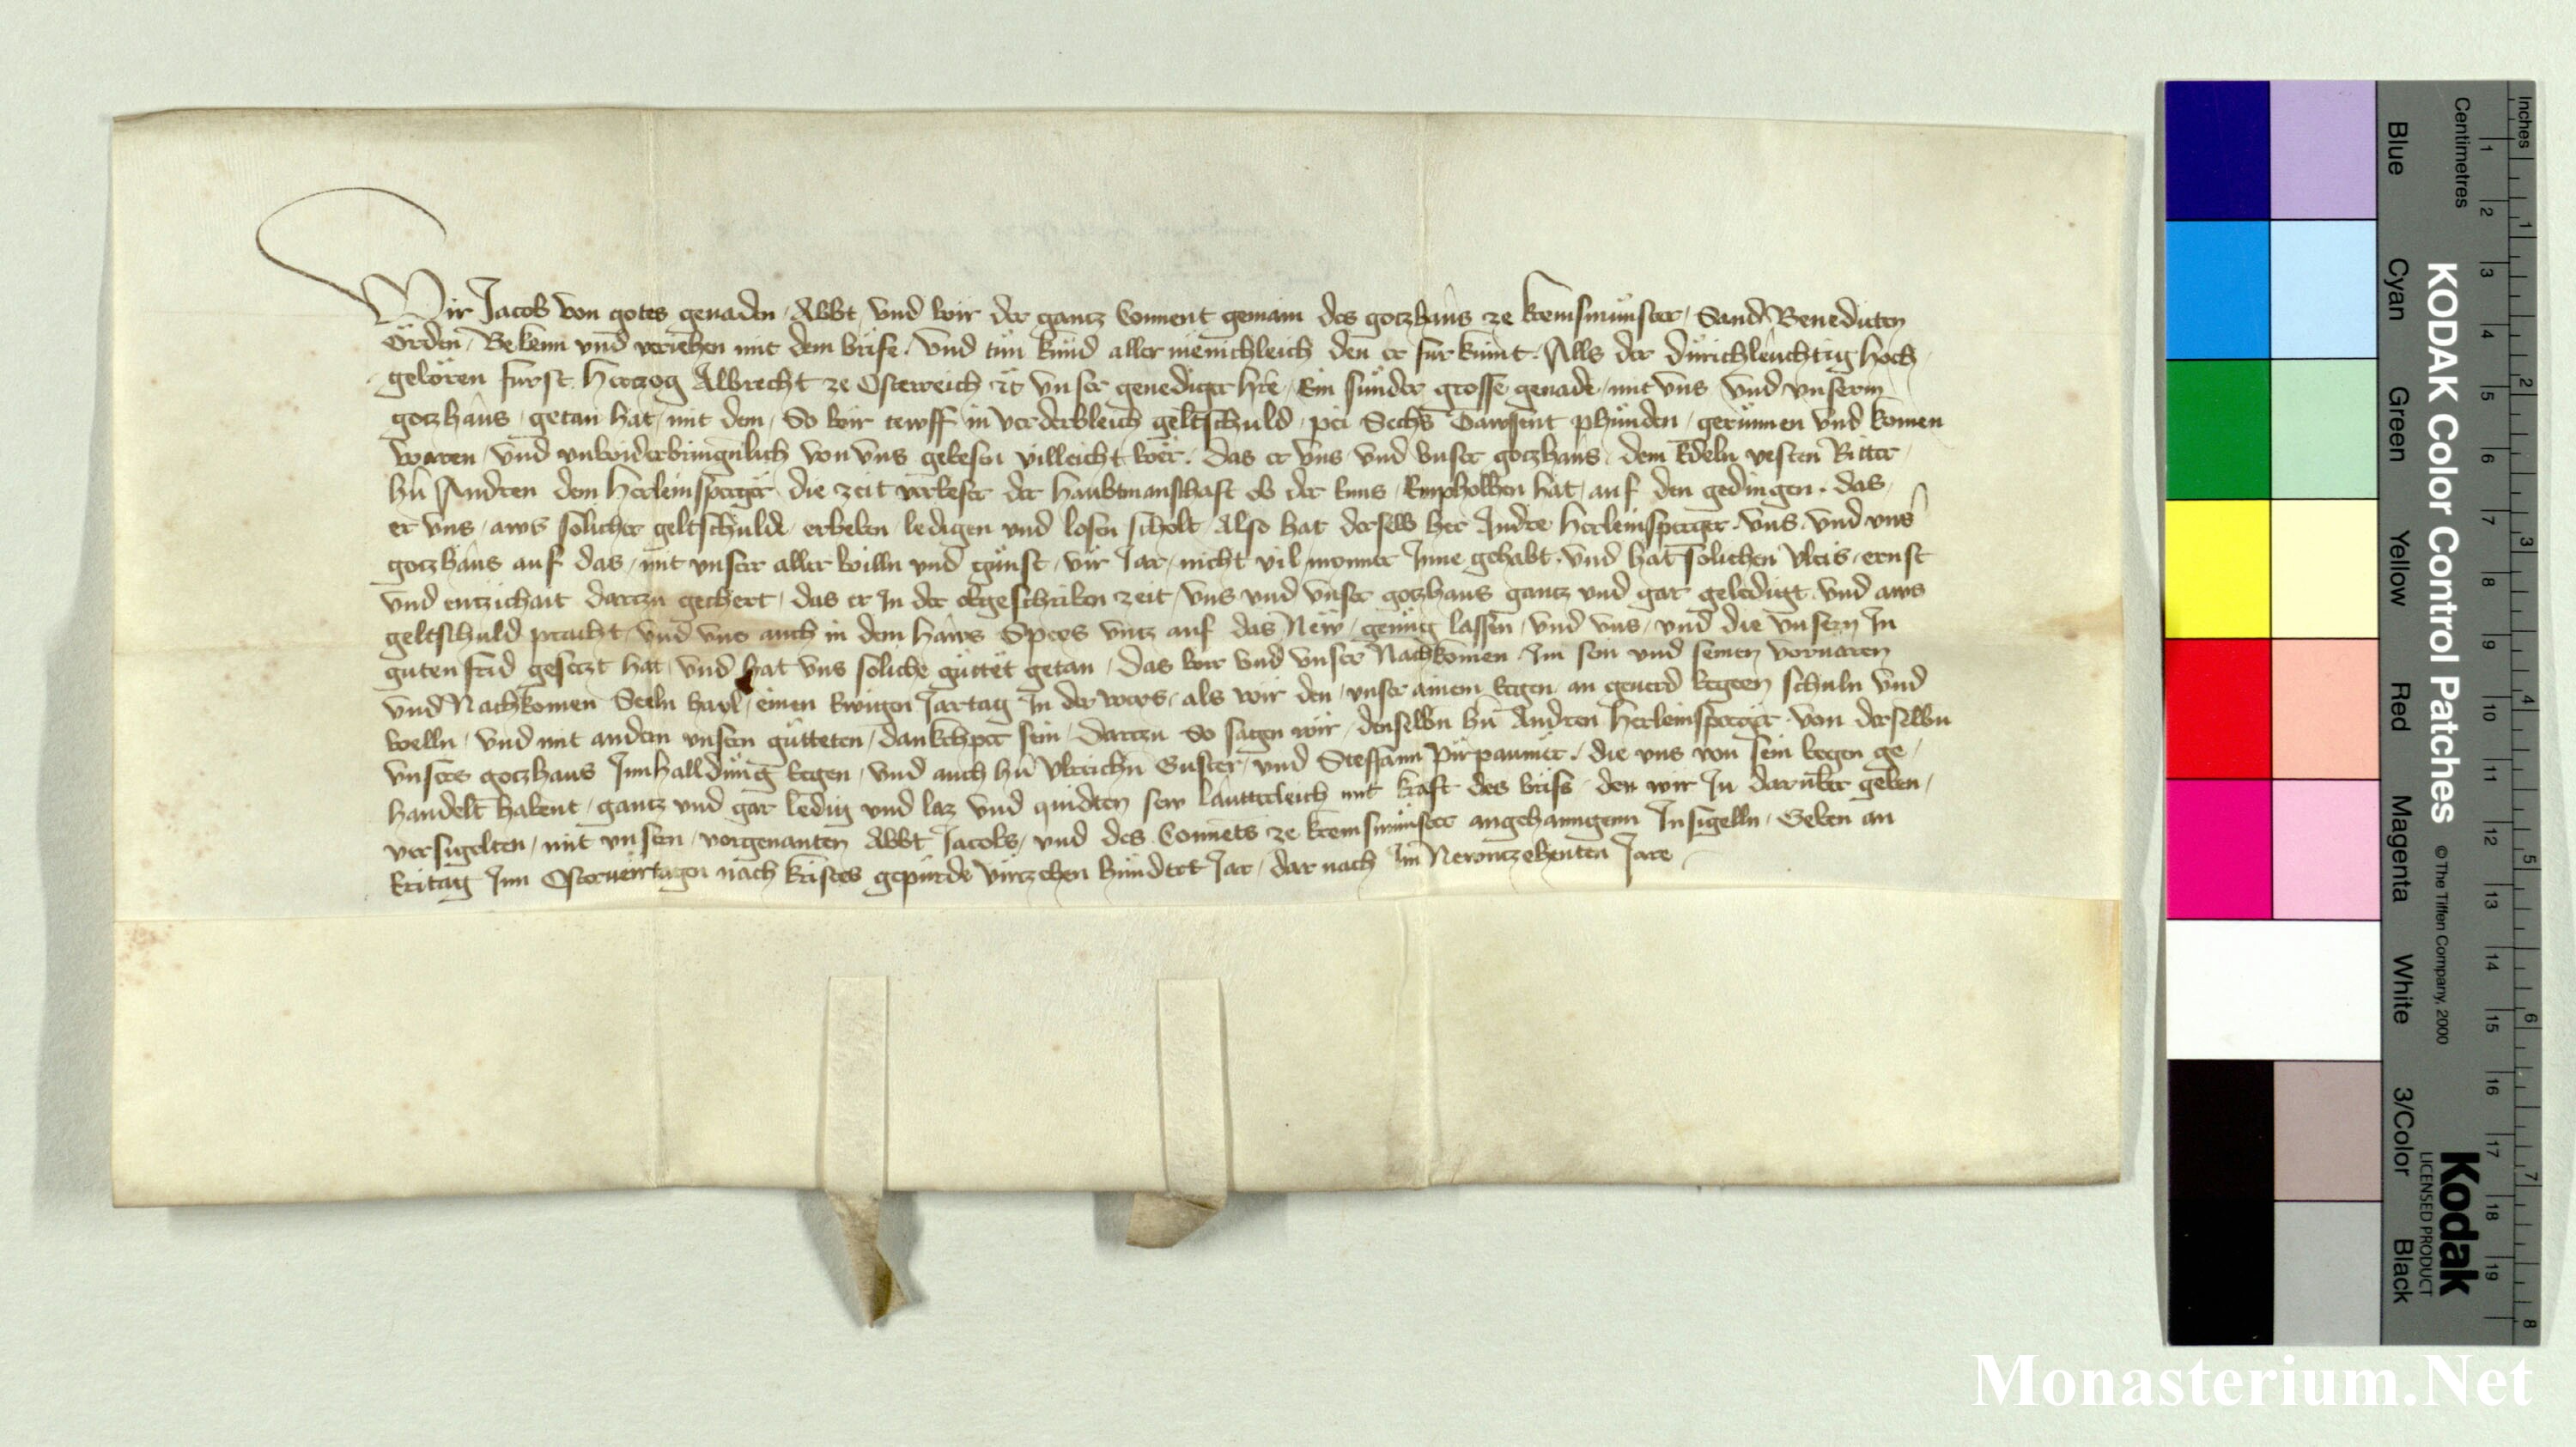 Wir Jacob von gotes genaden Abbt und wir der gantz Conuent gemain des gotzhaus ze kremsmunster Sand Benedicten
Orden Bekenn vnd veriehen mit dem brife Vnd tun kund aller menichleich den er furkumt Alls der durichleuchtig hoch
geboren furst hertzog Albrecht ze Osterreich etc vnser genediger hre Ein sunder grosse genade mit vns vnd vnserm
gotzhaus getan hat mit dem So wir tewff in verderbleich geltschuld pei Sechs Tawsent phunden gerunnen vnd komen
waren vnd vnwiderbringnlich von vns gewesen villeicht wer Das er vns vnd vnser gotzhaus dem Edeln vesten Ritter
hn Andren dem herleinsperger die zeit verweser der haubtmanschaft ob der Enns Enpholhen hat auf den gedingen das
er vns aws solicher geltschulde erheben ledigen vnd losen scholt Also hat derselb her Andre herleinsperger vns vnd vns
gotzhaus auf das mit vnser aller willn vnd gunst vir Jar nicht vil mynner Inne gehabt vnd hat solichen vleis ernst
vnd entzichait dartzu gechert das er In der obgeschriben zeit vns vnd vnser gotzhaus gantz vnd gar geledigt vnd aws
geltschuld pracht vnd vns auch in dem haws Speis vntz auf das New genug lassen vnd vns vnd die vnsern In
guten frid gesetzt hat vnd hat vns soliche guttet getan Das wir vnd vnser Nachkomen Im sein vnd seinen voruaren
vnd Nachkomen Seeln hayl einen Ewigen Jartag In der weis als wir den vnser ainem wegen an geuerd wegeen schuln vnd
welln vnd mit andern vnsern gutteten dankchper sein Dartzu So sagen wir denselbn hn Andren herleinsperger von derselbn
vnsers gotzhaus Innhalldung wegen vnd auch hn Vlreichn Guster vnd Steffann Pirpaumer die vns von sein wegen ge
handelt habent gantz vnd gar ledig vnd laz vnd quidten sew lautterleich mit kraft des brifs den wir In daruber geben
versigelten mit vnsern vorgenanten Abbt Jacobs vnd des Conuets ze kremsmunster angehanngenn Insigelln Geben an
Eritag Inn Osterueirtagen nach kristes gepurde virtzehen hundert Jar dar nach Im Newntzehenten Jare
KODAK Color Control Patches
© The Tiffen Company, 2000
Kodak
LICENSED PRODUCT
Inches 1 2 3 4 5 6 7 8
Centimetres 1 2 3 4 5 6 7 8 9 10 11 12 13 14 15 16 17 18 19
Blue Cyan Green Yellow Red Magenta White 3/Color Black
Monasterium.Net